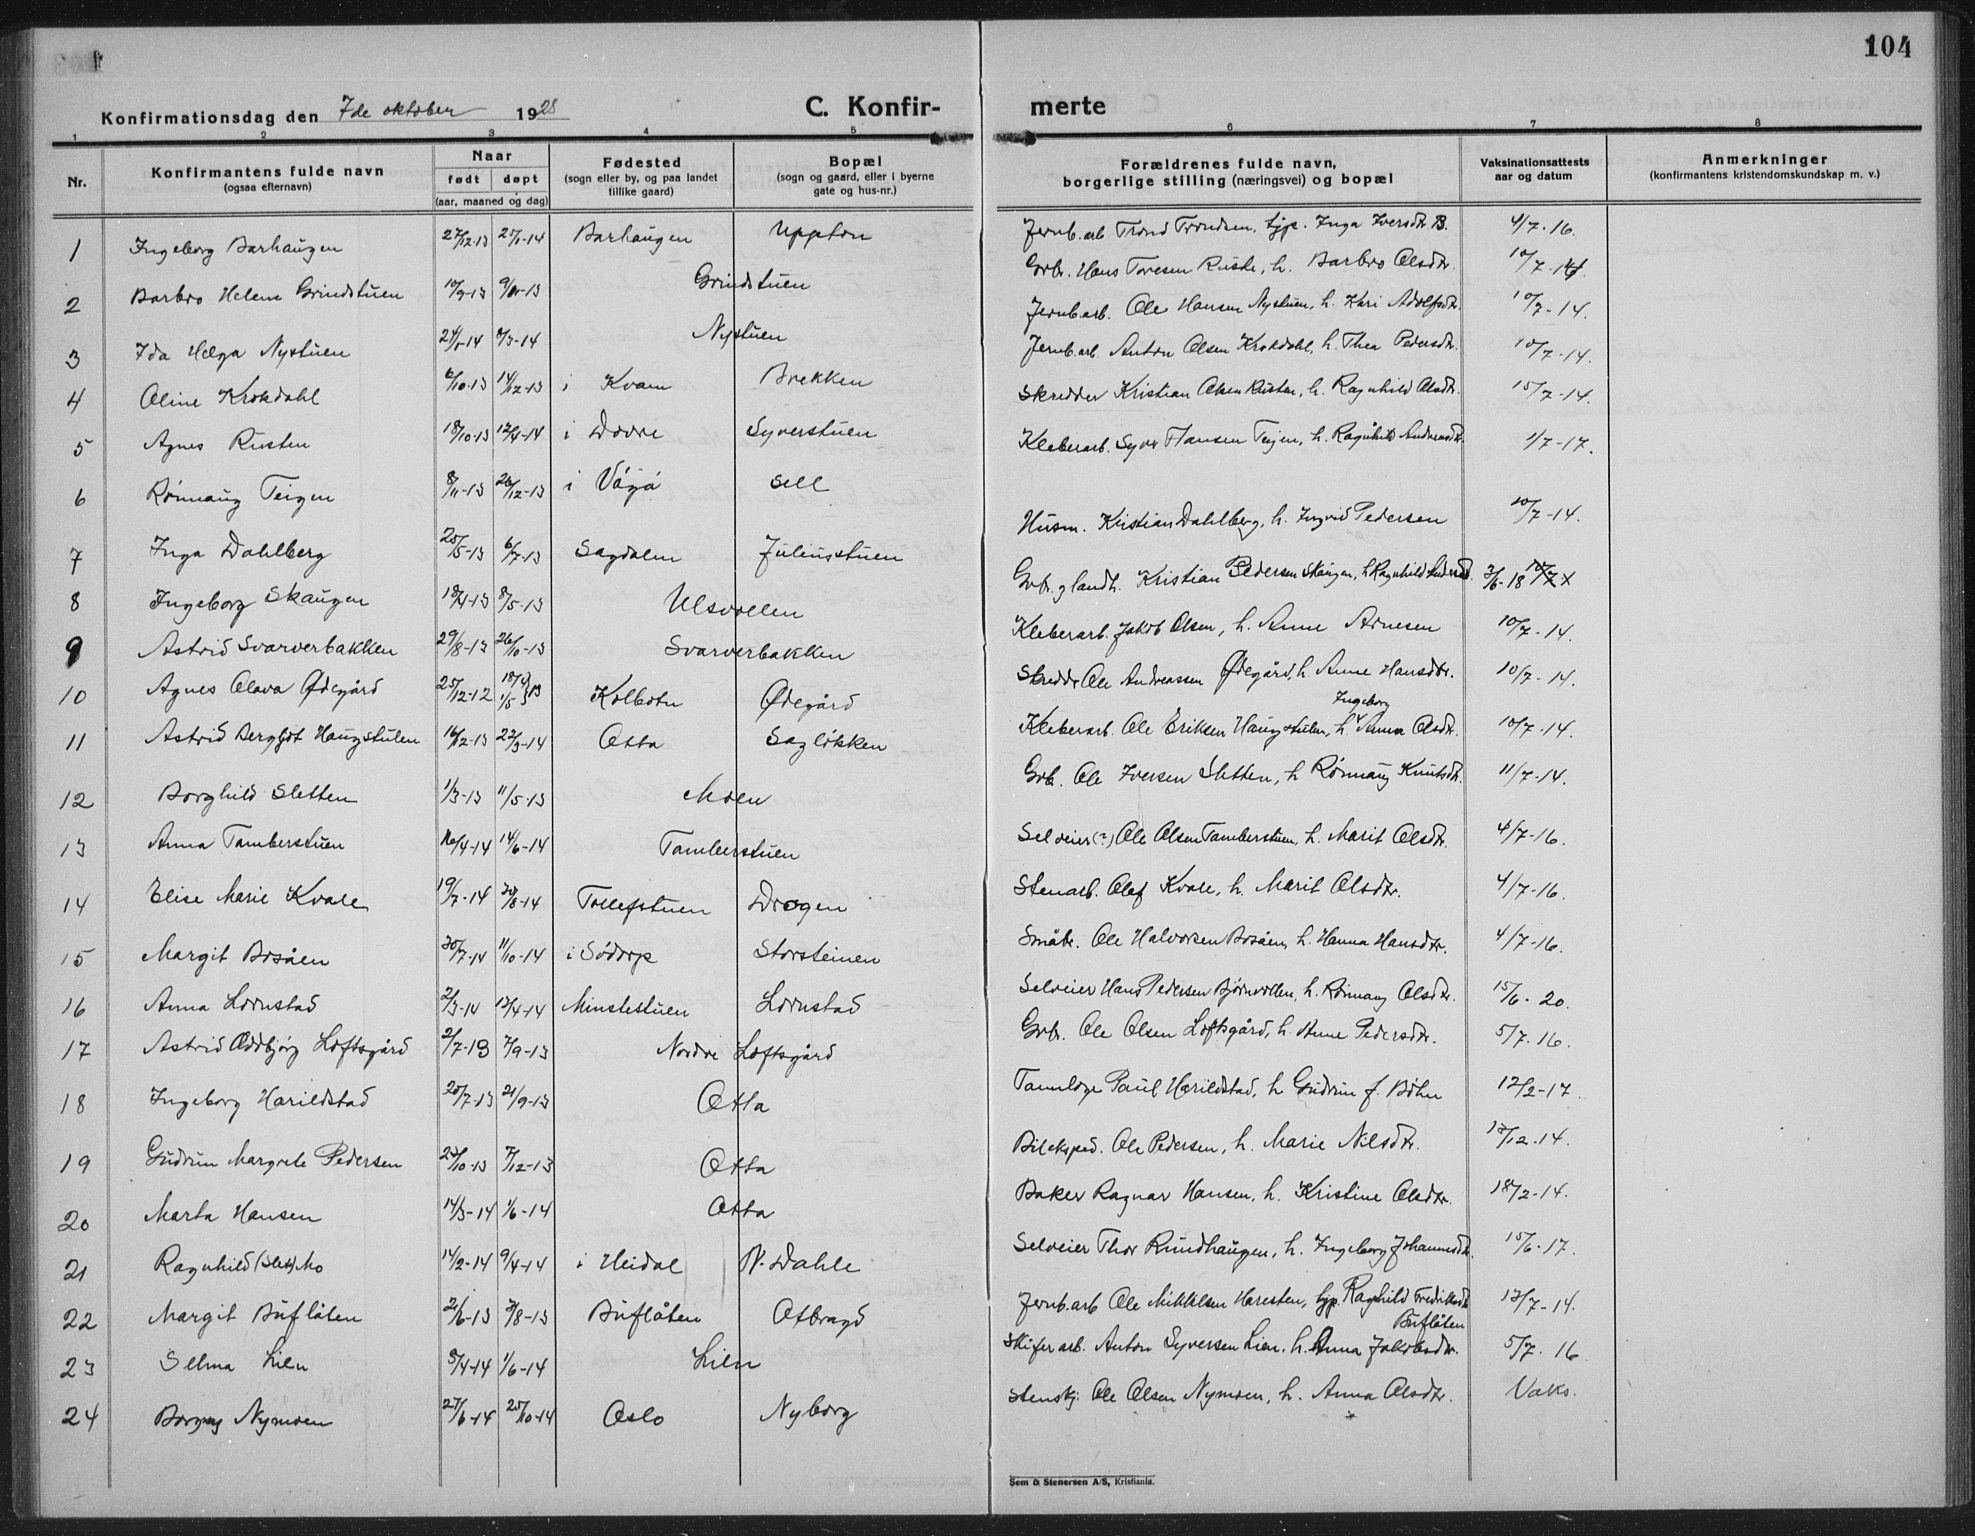 104
Konfirmationsdag den 7de oktober 1928 C. Konfir- merte
1 2 3 4 5 6 7 8
Nr. Konfirmantens fulde navn (ogsaa efternavn) Naar født døpt (aar, maaned og dag) Fødested (sogn eller by, og paa landet tillike gaard) Bopæl (sogn og gaard, eller i byerne gate og hus-nr.) Forældrenes fulde navn, borgerlige stilling (næringsvei) og bopæl Vaksinationsattests aar og datum Anmerkninger (konfirmantens kristendomskundskap m. v.)
1 Ingeborg Barhaugen 27/12-13 25/1-14 Barhaugen Uppton Jernb.arb Trond Trondsen, tjp. Inga Iversdtr. B. 4/7-16.
2 Barbro Helene Grindstuen 10/9-13 Grindstuen Grbr. Hans Toresen Ruste, h. Barbro Olsdtr. 10/7-14.
3 Ida Helga Nystuen 24/1-14 8/3-14 Nystuen Jernb.arb. Ole Hansen Nystuen, h. Kari Adolfsdtr. 10/7-14.
4 Oline Krokdahl 6/10-13 14/12-13 i Kvam Brekken Jernb.arb. Anton Olsen Krokdahl, h. Thea Pedersdtr. 10/7-14.
5 Agnes Rusten 18/10-13 12/4-14 i Dovre Syverstuen Skredder Kristian Olsen Rusten, h. Ragnhild Olsdtr. 15/7-14.
6 Rönnaug Teigen 8/11-13 26/12-13 i Vågå Sell Kleberarb. Syver Hansen Teigen, h. Ragnhild Andreasdtr. 1/7-17.
7 Inga Dahlberg 25/5-13 6/7-13 Sagdalen Juliusstuen Husm. Kristian Dahlberg, h. Ingrid Pedersen 10/7-14.
8 Ingeborg Skaugen 18/4-13 8/5-13 Ulsvollen Grbr. g landh. Kristian Pedersen Skaugen, h. Ragnhild 3/6-18
9 Astrid Svarverbakken 29/8-13 26/10-13 Svarverbakken Kleberarb. Jakob Olsen, h. Anne Arnesen 10/7-14.
10 Agnes Olava Ødegård 25/12-12 18/4 1/5 } 13 Kolbotn Ødegård Skredder Ole Andreassen Ødegård, h. Anne Hansdtr. 10/7-14.
11 Astrid Bergljot Haugstulen 16/12-13 22/3-14 Otta Sagløkken Kleberarb. Ole Eriksen Haugstulen, h. Ingeborg Anna Olsdtr. 10/7-14.
12 Borghild Sletten 1/3-13 11/5-13 Moen Grbr. Ole Iversen Sletten, h Rønnaug Knutsdtr. 11/7-14.
13 Anna Tamberstuen 16/4-14 14/6-14 Tamberstuen Selveier (?) Ole Olsen Tamberstuen, h. Marit Olsdtr. 4/7-16.
14 Elise Marie Kvale 19/7-14 30/8-14 Tollefstuen Drogen Stenarb. Olaf Kvale, h. Marit Olsdtr. 4/7-16.
15 Margit Bråsen 30/7-14 11/10-14 i Södorp Storsteinen Småbr. Ole Halvorsen h. Hanna Hansdtr. 4/7-16.
16 Anna Lornstad 2/3-14 13/4-14 Minstestuen Lornstad Selveier Hans Pedersen Björnvollen, h. Rönnaug Olsdtr. 15/6-20.
17 Astrid Oddbjørg Loftsgård 2/7-13 7/9-13 Nordre Loftsgård Grbr. Ole Olsen Loftsgård, h. Anne Pedersdtr. 5/7-16.
18 Ingeborg Harildstad 20/7-13 21/9-13 Otta Tannlæge Paul Harildstad, h Gudrun f. Böhn 12/2-17.
19 Gudrun Margrete Pedersen 23/10-13 7/12-13 Otta Bileksped. Ole Pedersen, h. Marie Nilsdtr. 13/12-14.
20 Marta Hansen 14/3-14 1/6-14 Otta Baker Ragnar Hansen, h. Kristine Olsdtr. 18/2-14.
21 Ragnhild (Slet) Mo 14/2-14 9/4-14 i Heidal N. Dahle Selveier Thor Rundhaugen, h. Ingeborg Johannesdtr. 15/6-17.
22 Margit Buflåten 2/6-13 3/8-13 Buflåten Otbragd Jernb.arb Ole Mikkelsen Haresten, tjp. Ragnhild Fredriksdtr. Buflåten 13/7-14.
23 Selma Lien 5/4-14 1/6-14 Lien Skiferarb. Anton Syversen Lien, h. Anna Jakobsdtr. 5/7-16.
24 Borgny Nymoen 27/6-14 25/10-14 Oslo Nyborg Stenskj. Ole Olsen Nymoen, h. Anna Olsdtr. Vaks.
Sem & Stenersen A/S, Kristiania.